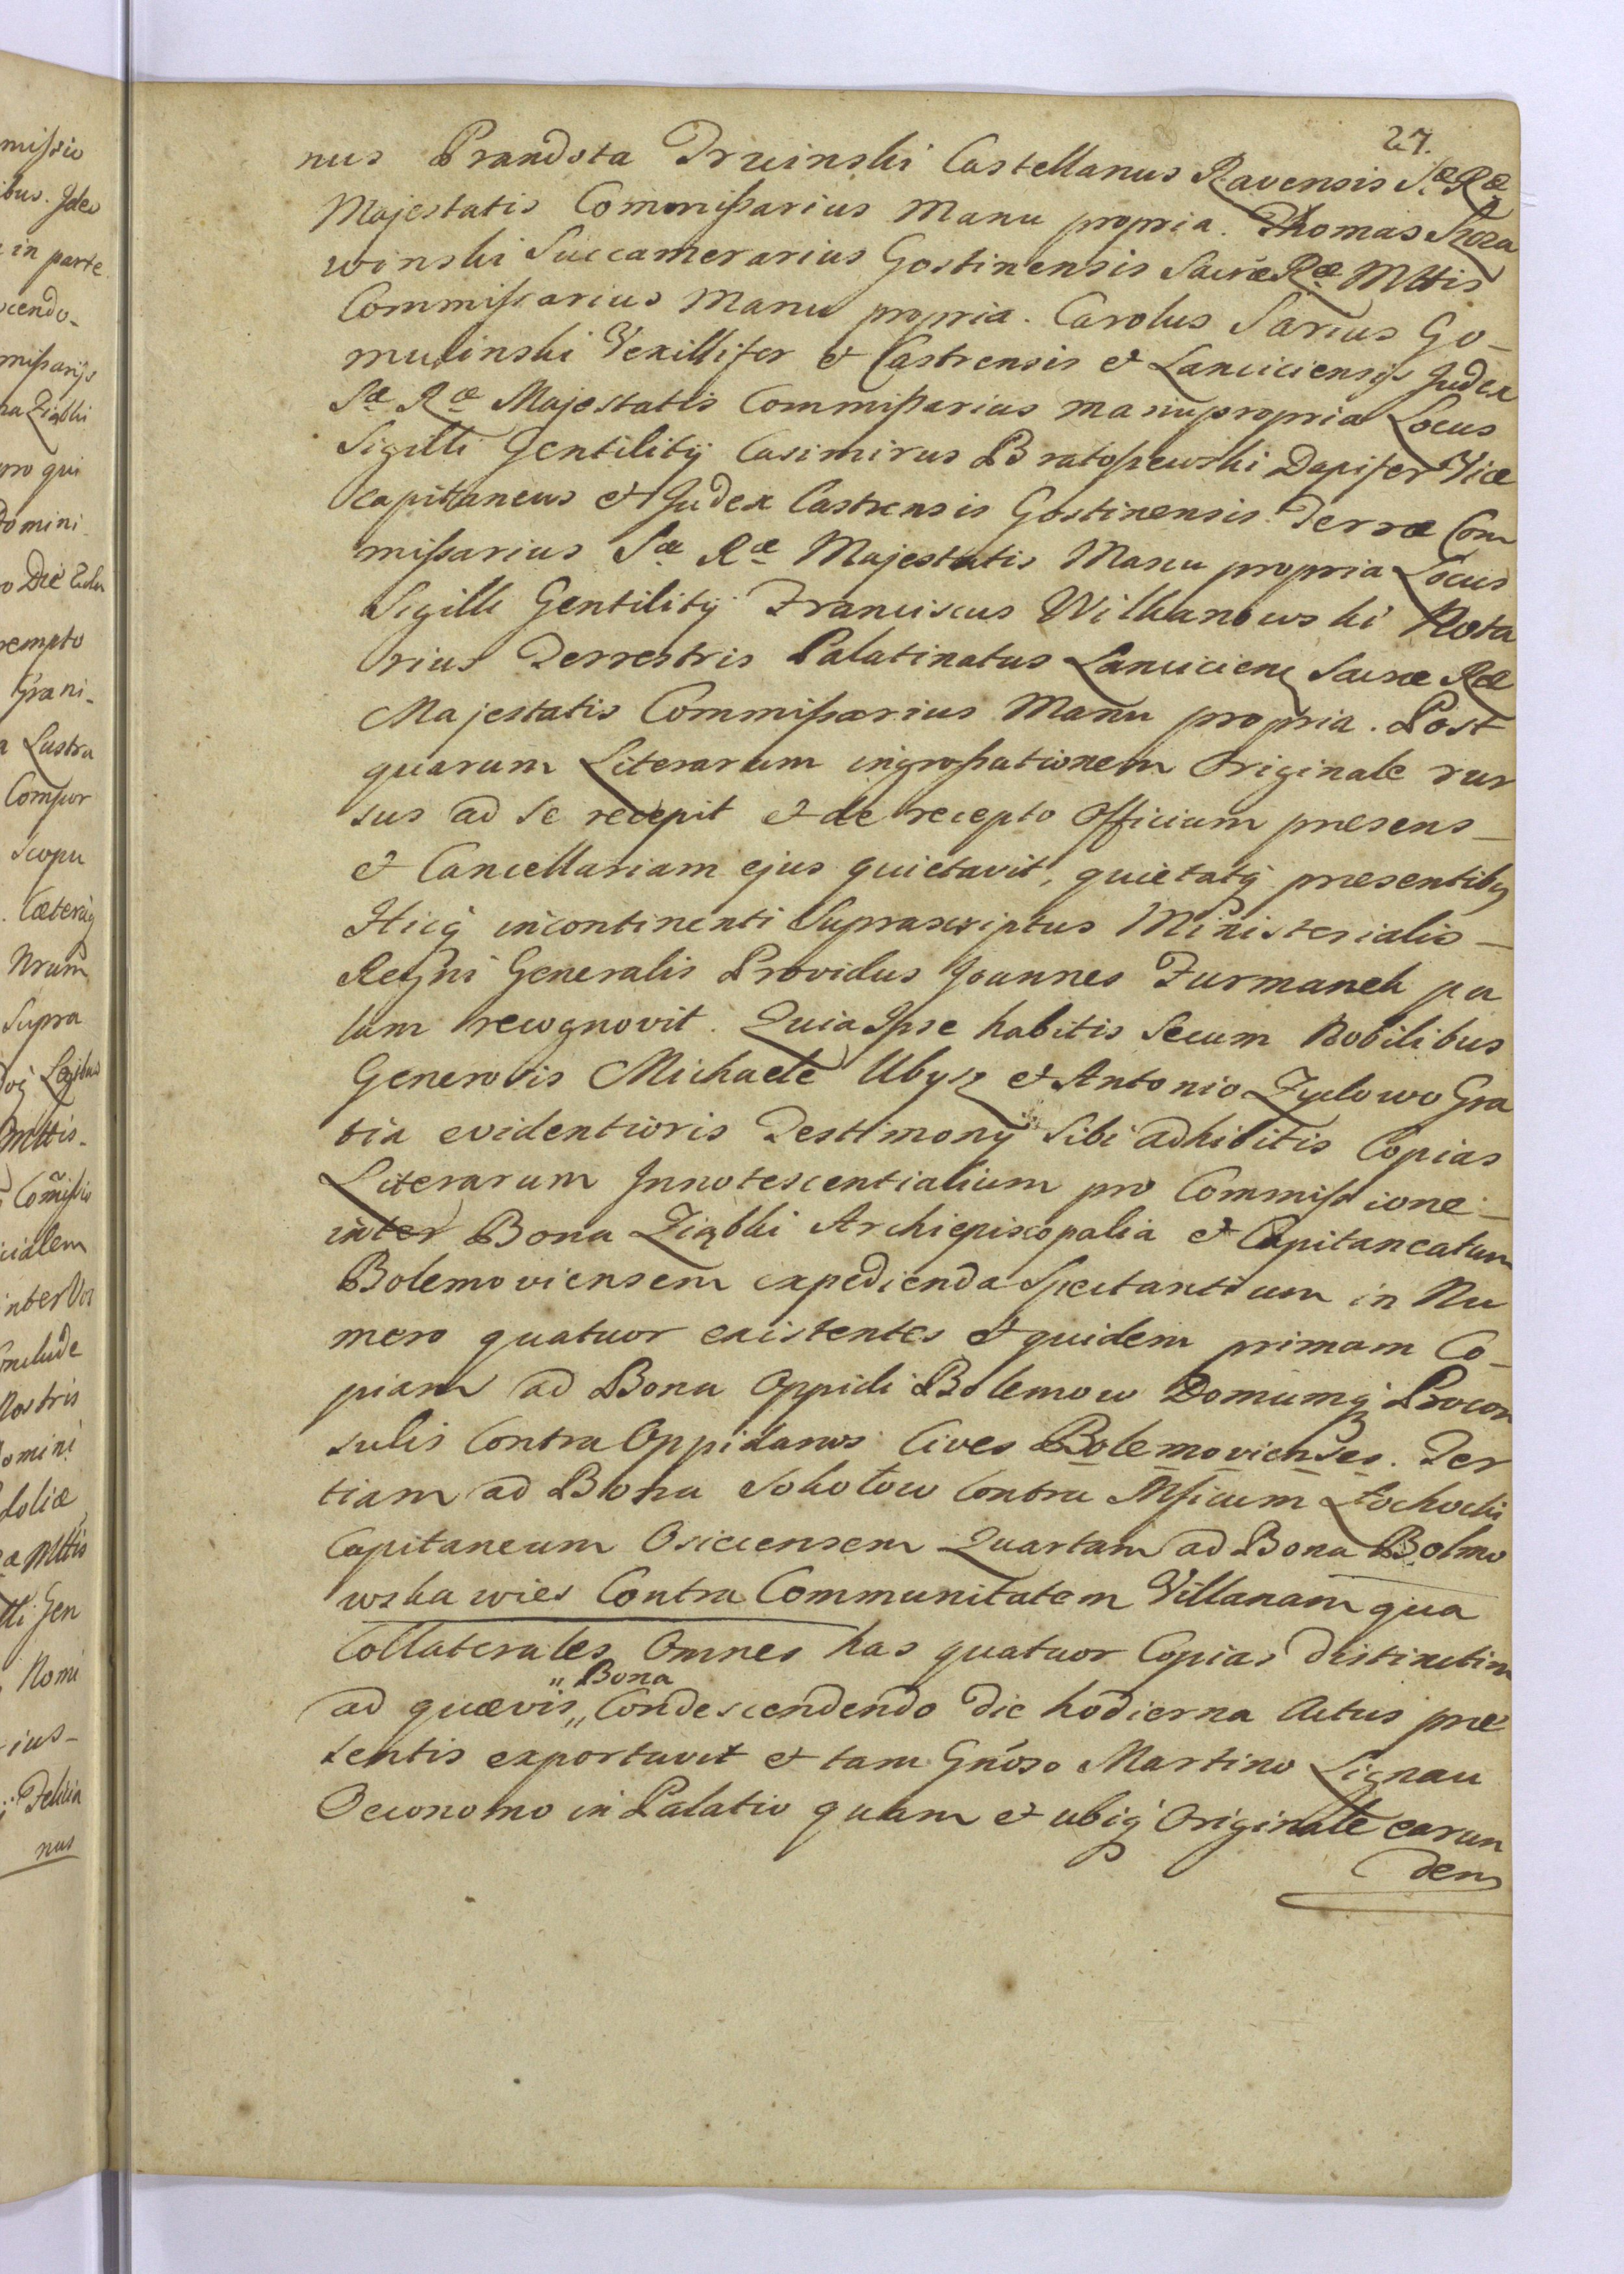 27.
nus Prandota Trzinski Castellanus Ravensis Sæ Ræ
Majestatis Commißarius Manu propria. Thomas Skrza
winski Succamerarius Gostinensis Sacræ Ræ Mttis
Commißarius Manu propria. Carolus Sarius Go-
mulinski Vexillifer et Castrensis et Lanciciensis Judex
Sæ Ræ Majestatis Commißarius manupropria Locus
Sigilli Gentilitij Casimirus Bratoszewski Dapifer Vice
capitaneus et Judex Castrensis Gostinensis Terræ Com
mißarius Sæ Ræ Majestatis Manu propria Locus
Sigilli Gentilitij Franciscus Wilkanowski Nota
rius Terrestris Palatinatus Lancicien Sacræ Ræ
Majestatis Commißarius Manu propria. Post
quarum Literarum ingroßationem Originale rur
sus ad se recepit et de recepto Officium presens_
et Cancellariam ejus quietavit, quietatq presentibq
Hicq incontinenti Suprascriptus Ministerialis_
Regni Generalis Providus Joannes Furmanek pa
lam recognovit. Quia Ipse habitis Secum Nobilibus
Generosis Michaele Ubysz et Antonio Zydowo Gra
tia evidentioris Testimonij Sibi adhibitis Copias
Literarum Innotescentialium pro Commißione_
inter Bona Ziąbki Archiepiscopalia et Capitaneatum
Bolemoviensem expedienda Spectantium in Nu
mero quatuor existentes et quidem primam Co-
piam ad Bona Oppidi Bolemow Domumq Procon
sulis Contra Oppidanos Cives Bolemovienses. Ter
tiam ad Bona Sokołow Contra Mficum Łochocki
Capitaneum Osiecensem Quartam ad Bona Bolmo
wska wies Contra Communitatem Villanam qua
Collaterales Omnes has quatuor Copias distinctim
ad quævis „ Bona „ Condescendendo die hodierna Actus præ
sentis exportavit et tam Gnoso Martino Lignau
Oeconomo in Palatio quam et ubiq Originale earun
dem